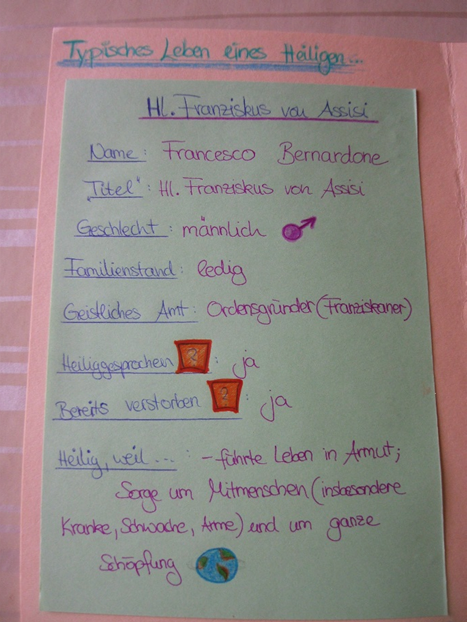 Typisches Leben eines Heiligen...
Hl. Franziskus von Assisi
Name: Francesco Bernardone
„Titel": Hl. Franziskus von Assisi
Geschlecht: männlich
Familienstand: ledig
Geistliches Amt: Ordensgründer (Franziskaner)
Heiliggesprochen: ja
Bereits verstorben: ja
Heilig, weil...: - führte Leben in Armut;
Sorge um Mitmenschen (insbesondere
Kranke, Schwache, Arme) und um ganze
Schöpfung